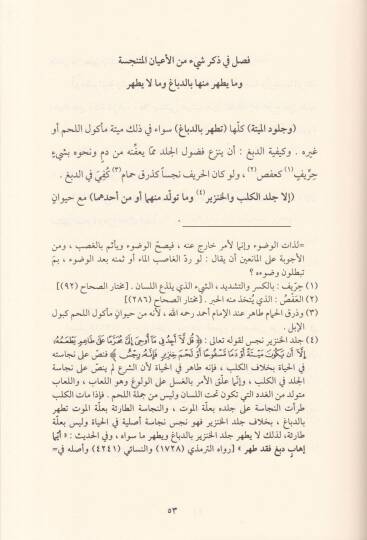 فصل في ذكر شيء من الأعيان المتنجسة
وما يطهر منها بالدباغ وما لا يطهر
(وجلود الميتة) كلّها (تطهر بالدباغ) سواء في ذلك ميتة مأكول اللحم أو
غيره . وكيفية الدبغ : أن ينزع فضول الجلد مما يعفّنه من دمٍ ونحوه بشيءٍ
حِرِّيفٍ(١) كعفص(٢) ، ولو كان الحريف نجساً كذرق حمام(٣) كُفِيَ في الدبغ .
(إلا جلد الكلب والخنزير(٤) وما تولّد منهما أو من أحدهما) مع حيوانٍ
=لذات الوضوء وإنما لأمر خارج عنه ، فيصحّ الوضوء ويأثم بالغصب ، ومن
الأجوبة على المانعين أن يقال : لو ردّ الغاصب الماء أو ثمنه بعد الوضوء ، بمَ
تبطلون وضوءه ؟
(١) حِرّيف : بالكسر والتشديد، الشيء الذي يلذع اللسان . [مختار الصحاح (٩٢)]
(٢) العَفْصُ : الذي يُتخذ منه الحبر . [مختار الصحاح (٢٨٦)]
(٣) وذرق الحمام طاهر عند الإمام أحمد رحمه الله ، لأنه من حيوان مأكول اللحم كبول
الإبل .
(٤) جلد الخنزير نجس لقوله تعالى : ﴿ قُل لَّا أَجِدُ فِي مَا أُوحِيَ إِلَيَّ مُحَرَّمًا عَلَىٰ طَاعِمٍ يَطْعَمُهُ
إِلَّا أَن يَكُونَ مَيْتَةً أَوْ دَمًا مَّسْفُوحًا أَوْ لَحْمَ خِنزِيرٍ فَإِنَّهُ رِجْسٌ ﴾ فنصّ على نجاسته
في الحياة بخلاف الكلب ، فإنه طاهر في الحياة لأن الشرع لم ينصّ على نجاسة
الجلد في الكلب ، وإنما علّق الأمر بالغسل على الولوغ وهو اللعاب ، واللعاب
متولد من الغدد التي تكون تحت اللسان وليس من جملة اللحم . فإذا مات الكلب
طرأت النجاسة على جلده بعلّة الموت ، والنجاسة الطارئة بعلّة الموت تطهر
بالدباغ ، بخلاف جلد الخنزير فهو نجس نجاسة أصلية في الحياة وليس بعلّة
طارئة، لذلك لا يطهر جلد الخنزير بالدباغ ويطهر ما سواه ، وفي الحديث : « أيّما
إهابٍ دبغ فقد طهر » [رواه الترمذي (١٧٢٨) والنسائي (٤٢٤١) وأصله في=
٥٣